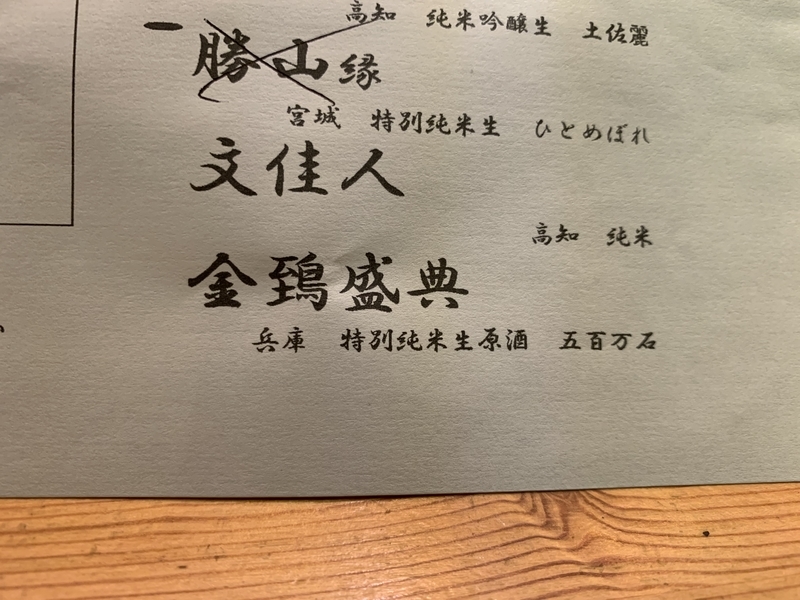 高知 純米吟醸生 土佐麗
勝山縁
宮城 特別純米生 ひとめぼれ
文佳人
高知 純米
金鵄盛典
兵庫 特別純米生原酒 五百万石